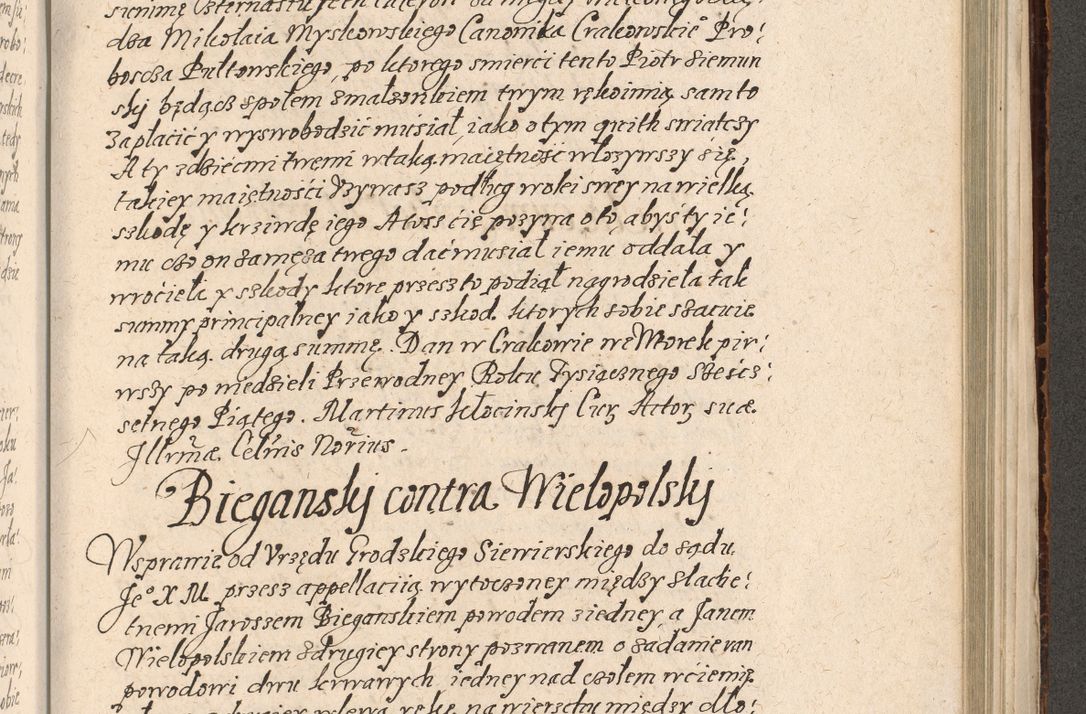 dza Mikołaia Myszkowskiego Canonika Crakowskie° Pro:
boscza Pułtowskiego, po ktorego smierci ten to Piotr Siemun
skÿ będącz społem z małżonkiem twym rękoimią sam to
zapłacić y wyswobodzić musiał, iako o tym qwith swiatczy
A ty z dziećmi twemi w taką maiętność włozywszy się,
takiey maiętności vzywasz podług wolei swey na wielką
szkodę y krziwdę iego A toss cię pozywa o to abyś ty ie:
mu czo on za męża twego dać musiał iemu oddała y
wrocieła y szkody ktore przesz to podiął nagrodzieła tak
summy principalney iako y szkod ktorych sobie szacuie
na taką drugą summę. Dan w Crakowie we Wtorek pir:
wszy po niedzieli Przewodney Roku Tysiącznego Sześcz:
setnego Piątego. Martinus Kłocinskÿ Cur Actor suæ
Illrmæ Celnis Norius.
Bieganskÿ contra Wielopolskÿ
W sprawie od Vrzędu Grodzkiego Siewierskiego do sądu
Je° X M przesz appellatiią wytoczoney między slache:
tnemi Jaroszem Bieganskiem powodem z iedney, a Janem
Wielopolskiem z drugiey strony pozwanem o zadanie ran
powodowi dwu krwawych, iedney nad czołem w ciemię